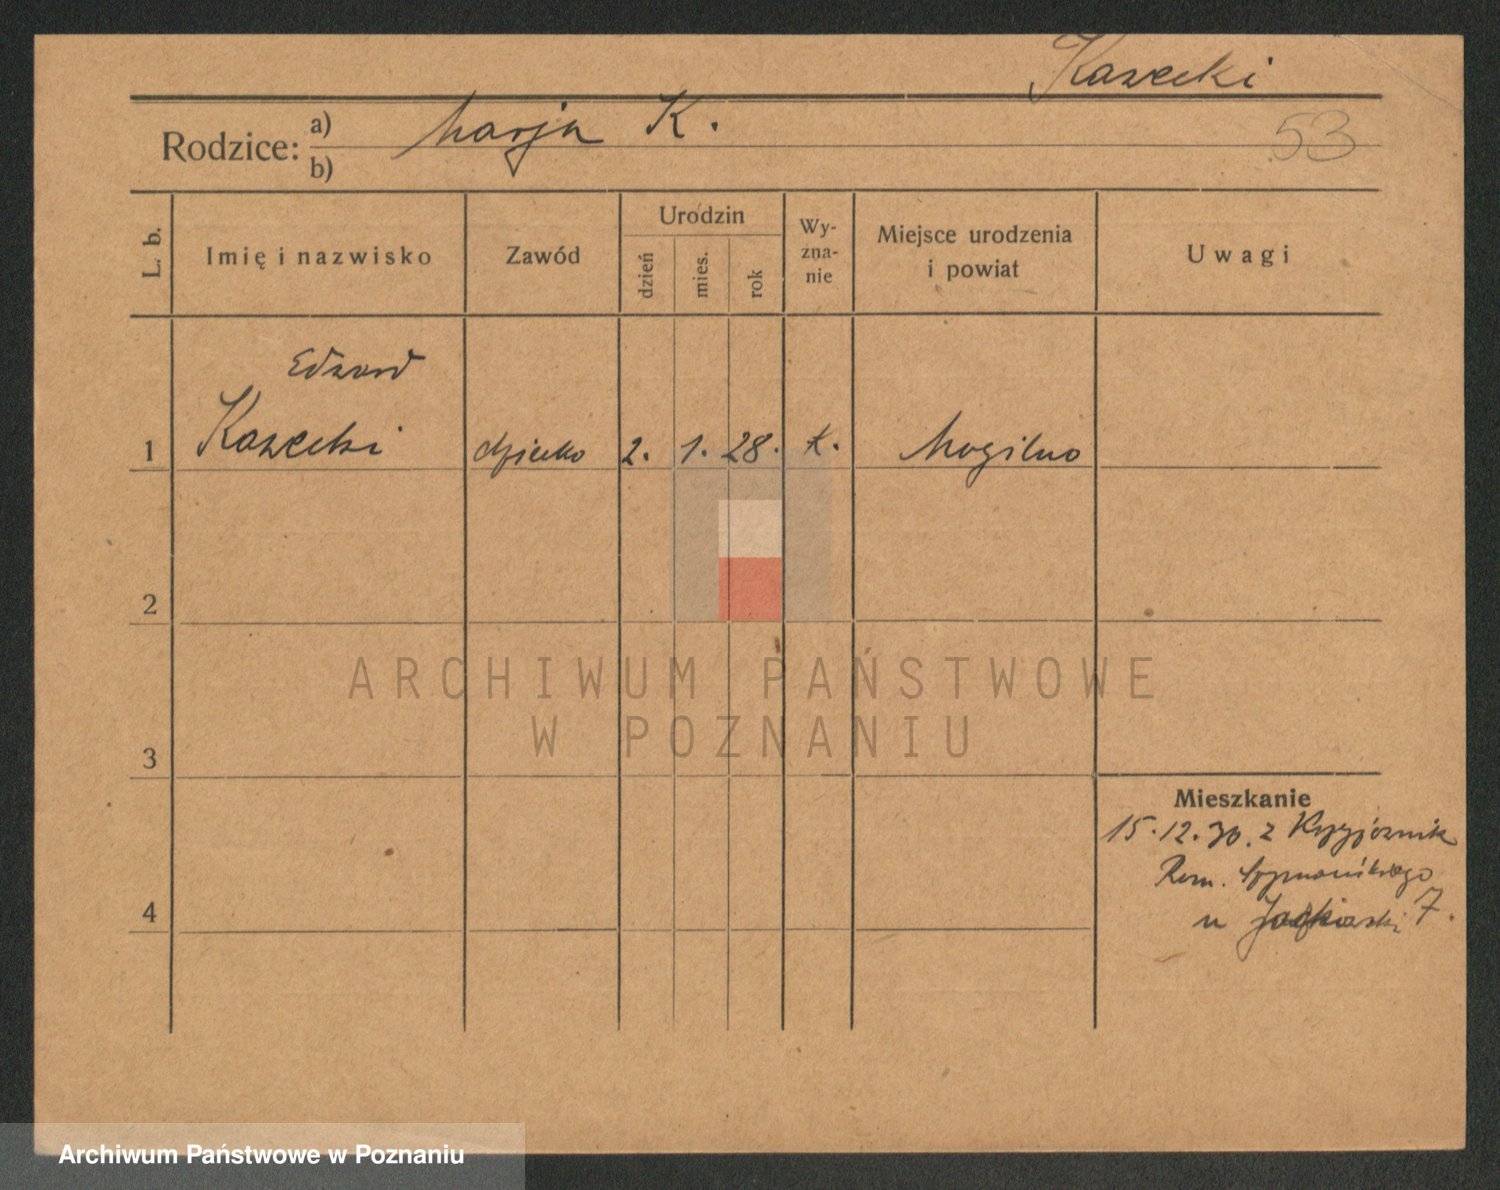 Kasecki
Rodzice: a) Marja K.
b)
53
L. b.
Imię i nazwisko
Zawód
Urodzin
dzień
mies.
rok
Wy-
zna-
nie
Miejsce urodzenia
i powiat
Uwagi
Edward
1 Kasecki dziecko 2. 1. 28. k. Mogilno
2
3
4
Mieszkanie
15.12.30. z
Rom. Szymańskiego
u 7.
ARCHIWUM PAŃSTWOWE
W POZNANIU
Archiwum Państwowe w Poznaniu